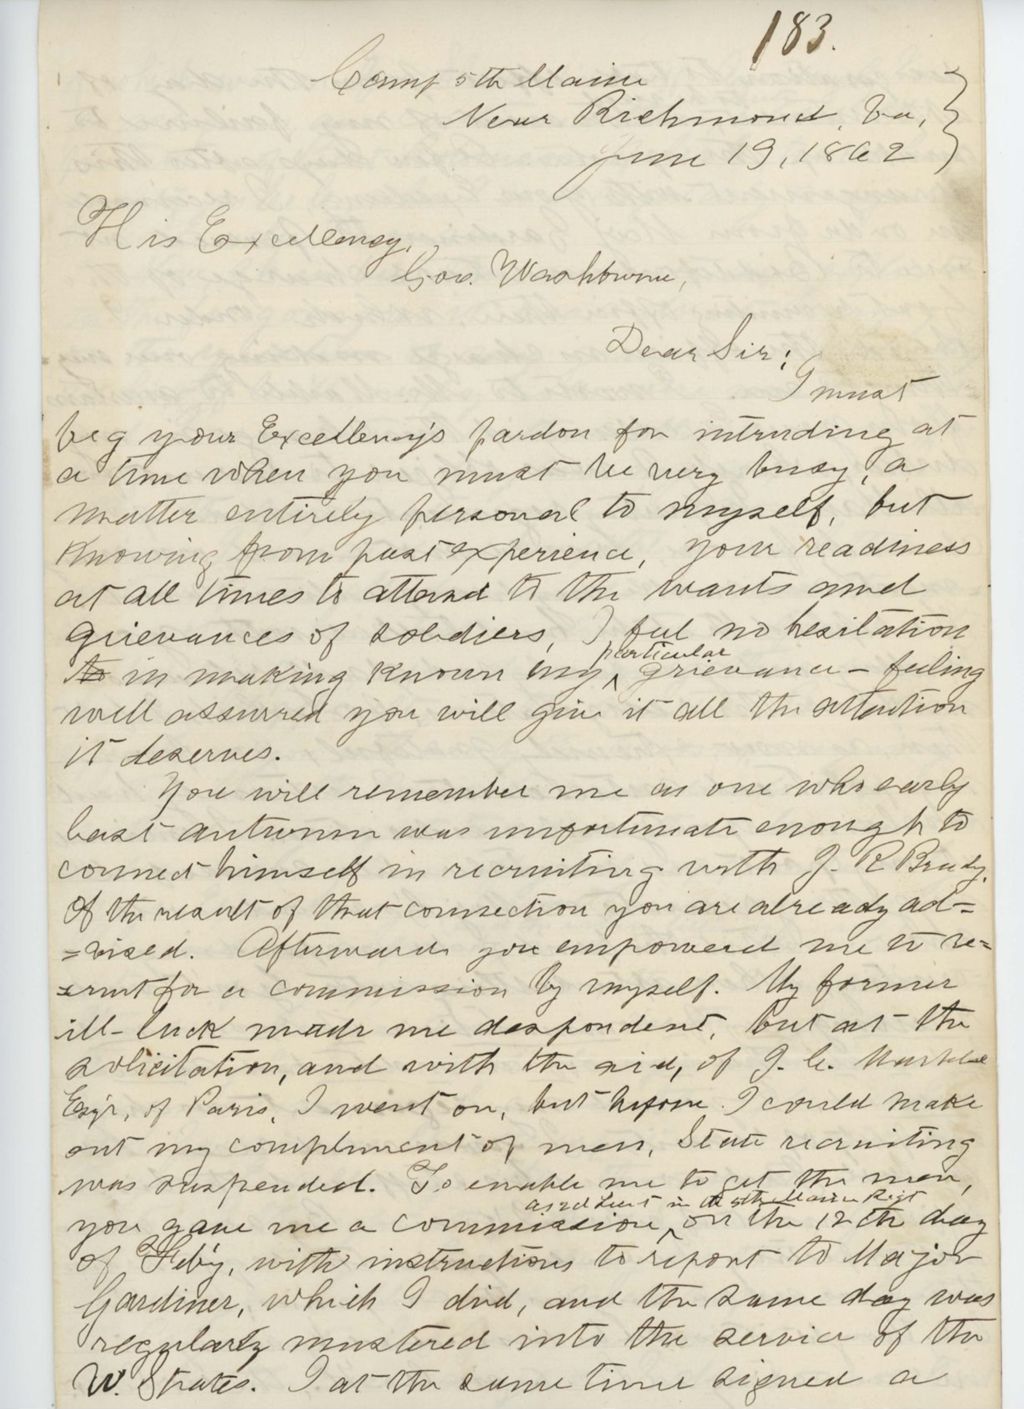 183.
Camp 5th Maine
Near Richmond, Va,
June 19, 1862
His Excellency,
Gov. Washburne,
Dear Sir;
I must
beg your Excellency's pardon for intruding at
a time when you must be very busy, a
matter entirely personal to myself, but
knowing from past experience, your readiness
at all times to attend to the wants and
grievances of soldiers, I feel no hesitation
to in making known my particular grievance – feeling
well assured you will give it all the attention
it deserves.
You will remember me as one who early
last autumn was unfortunate enough to
connect himself in recruiting with J. R Brady.
Of the result of that connection you are already ad=
=vised. Afterwards you empowered me to re=
=cruit for a commission by myself. My former
ill-luck made me despondent, but at the
solicitation, and with the aid, of J. C. Marble
Esqr, of Paris, I went on, but before I could make
out my complement of men, State recruiting
was suspended. To enable me to get the men,
you gave me a commission, as 2d Lieut in the 5th Maine Regt on the 12th day
of Feby, with instructions to report to Major
Gardiner, which I did, and the same day was
regularly mustered into the service of the
U. States. I at the same time signed a